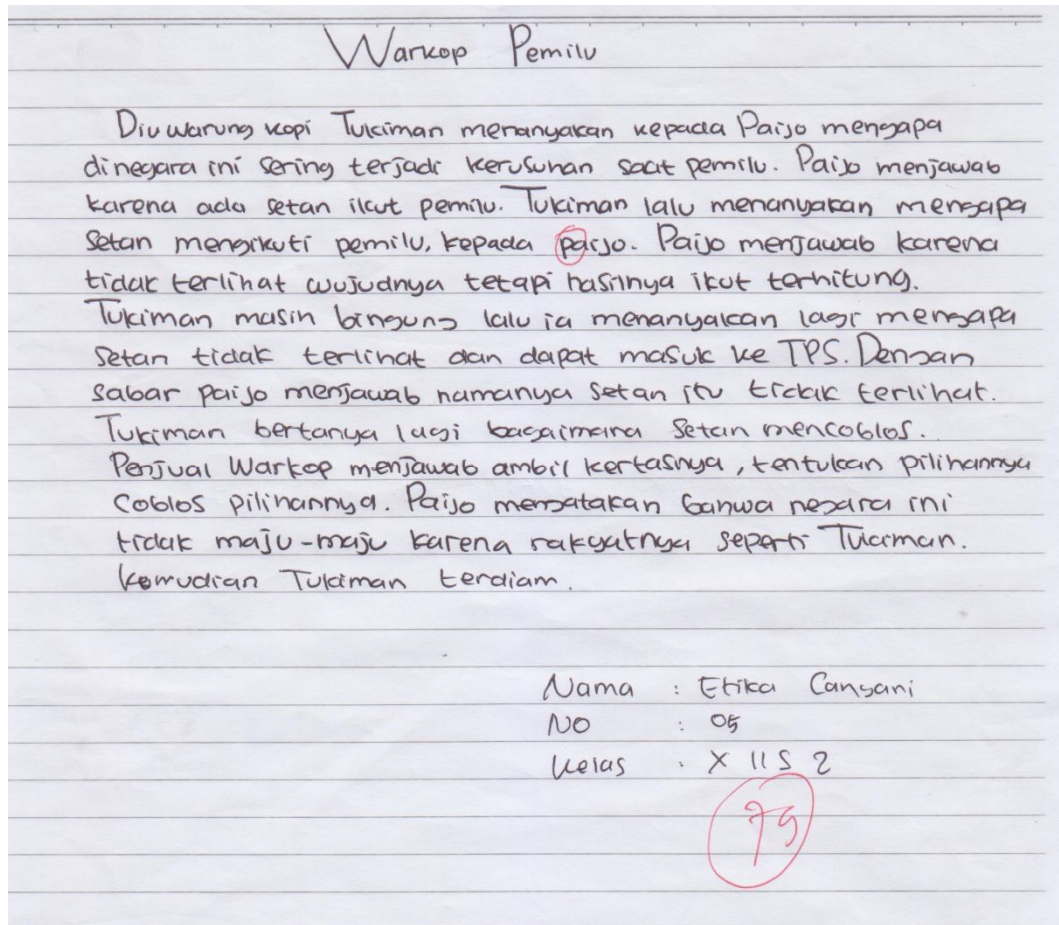 Warkop Pemilu
Diwarung kopi Tukiman menanyakan kepada Paijo mengapa
dinegara ini sering terjadi kerusuhan saat pemilu. Paijo menjawab
karena ada setan ikut pemilu. Tukiman lalu menanyakan mengapa
Setan mengikuti pemilu, kepada paijo. Paijo menjawab karena
tidak terlihat wujudnya tetapi hasilnya ikut terhitung.
Tukiman masih bingung lalu ia menanyakan lagi mengapa
setan tidak terlihat dan dapat masuk ke TPS. Dengan
sabar paijo menjawab namanya setan itu tidak terlihat.
Tukiman bertanya lagi bagaimana setan mencoblos.
Penjual Warkop menjawab ambil kertasnya, tentukan pilihannya
coblos pilihannya. Paijo mengatakan bahwa negara ini
tidak maju-maju karena rakyatnya seperti Tukiman.
kemudian Tukiman terdiam.
Nama : Etika Cahyani
NO : 05
Kelas : X IIS 2
79